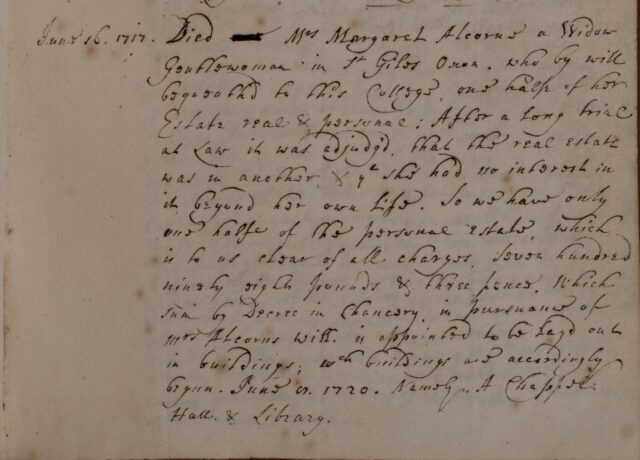 June 16. 1717. Died Mrs Margaret Alcorne a Widow
Gentlewoman in St Giles Oxon. who by will
bequeath'd to this College, one halfe of her
Estate real & personal; After a long trial
at Law it was adjudg'd, that the real Estate
was in another, & yt she had no interest in
it beyond her own life. So we have only
one halfe of the personal Estate, which
is to us clear of all charges, Seven hundred
ninety eight pounds & three pence, Which
sum by Decree in Chancery, in pursuance of
Mrs Alcorns will. is appointed to be layd out
in buildings; wch buildings are accordingly
begun. June 1720. Namely. A Chappel.
Hall. & Library.